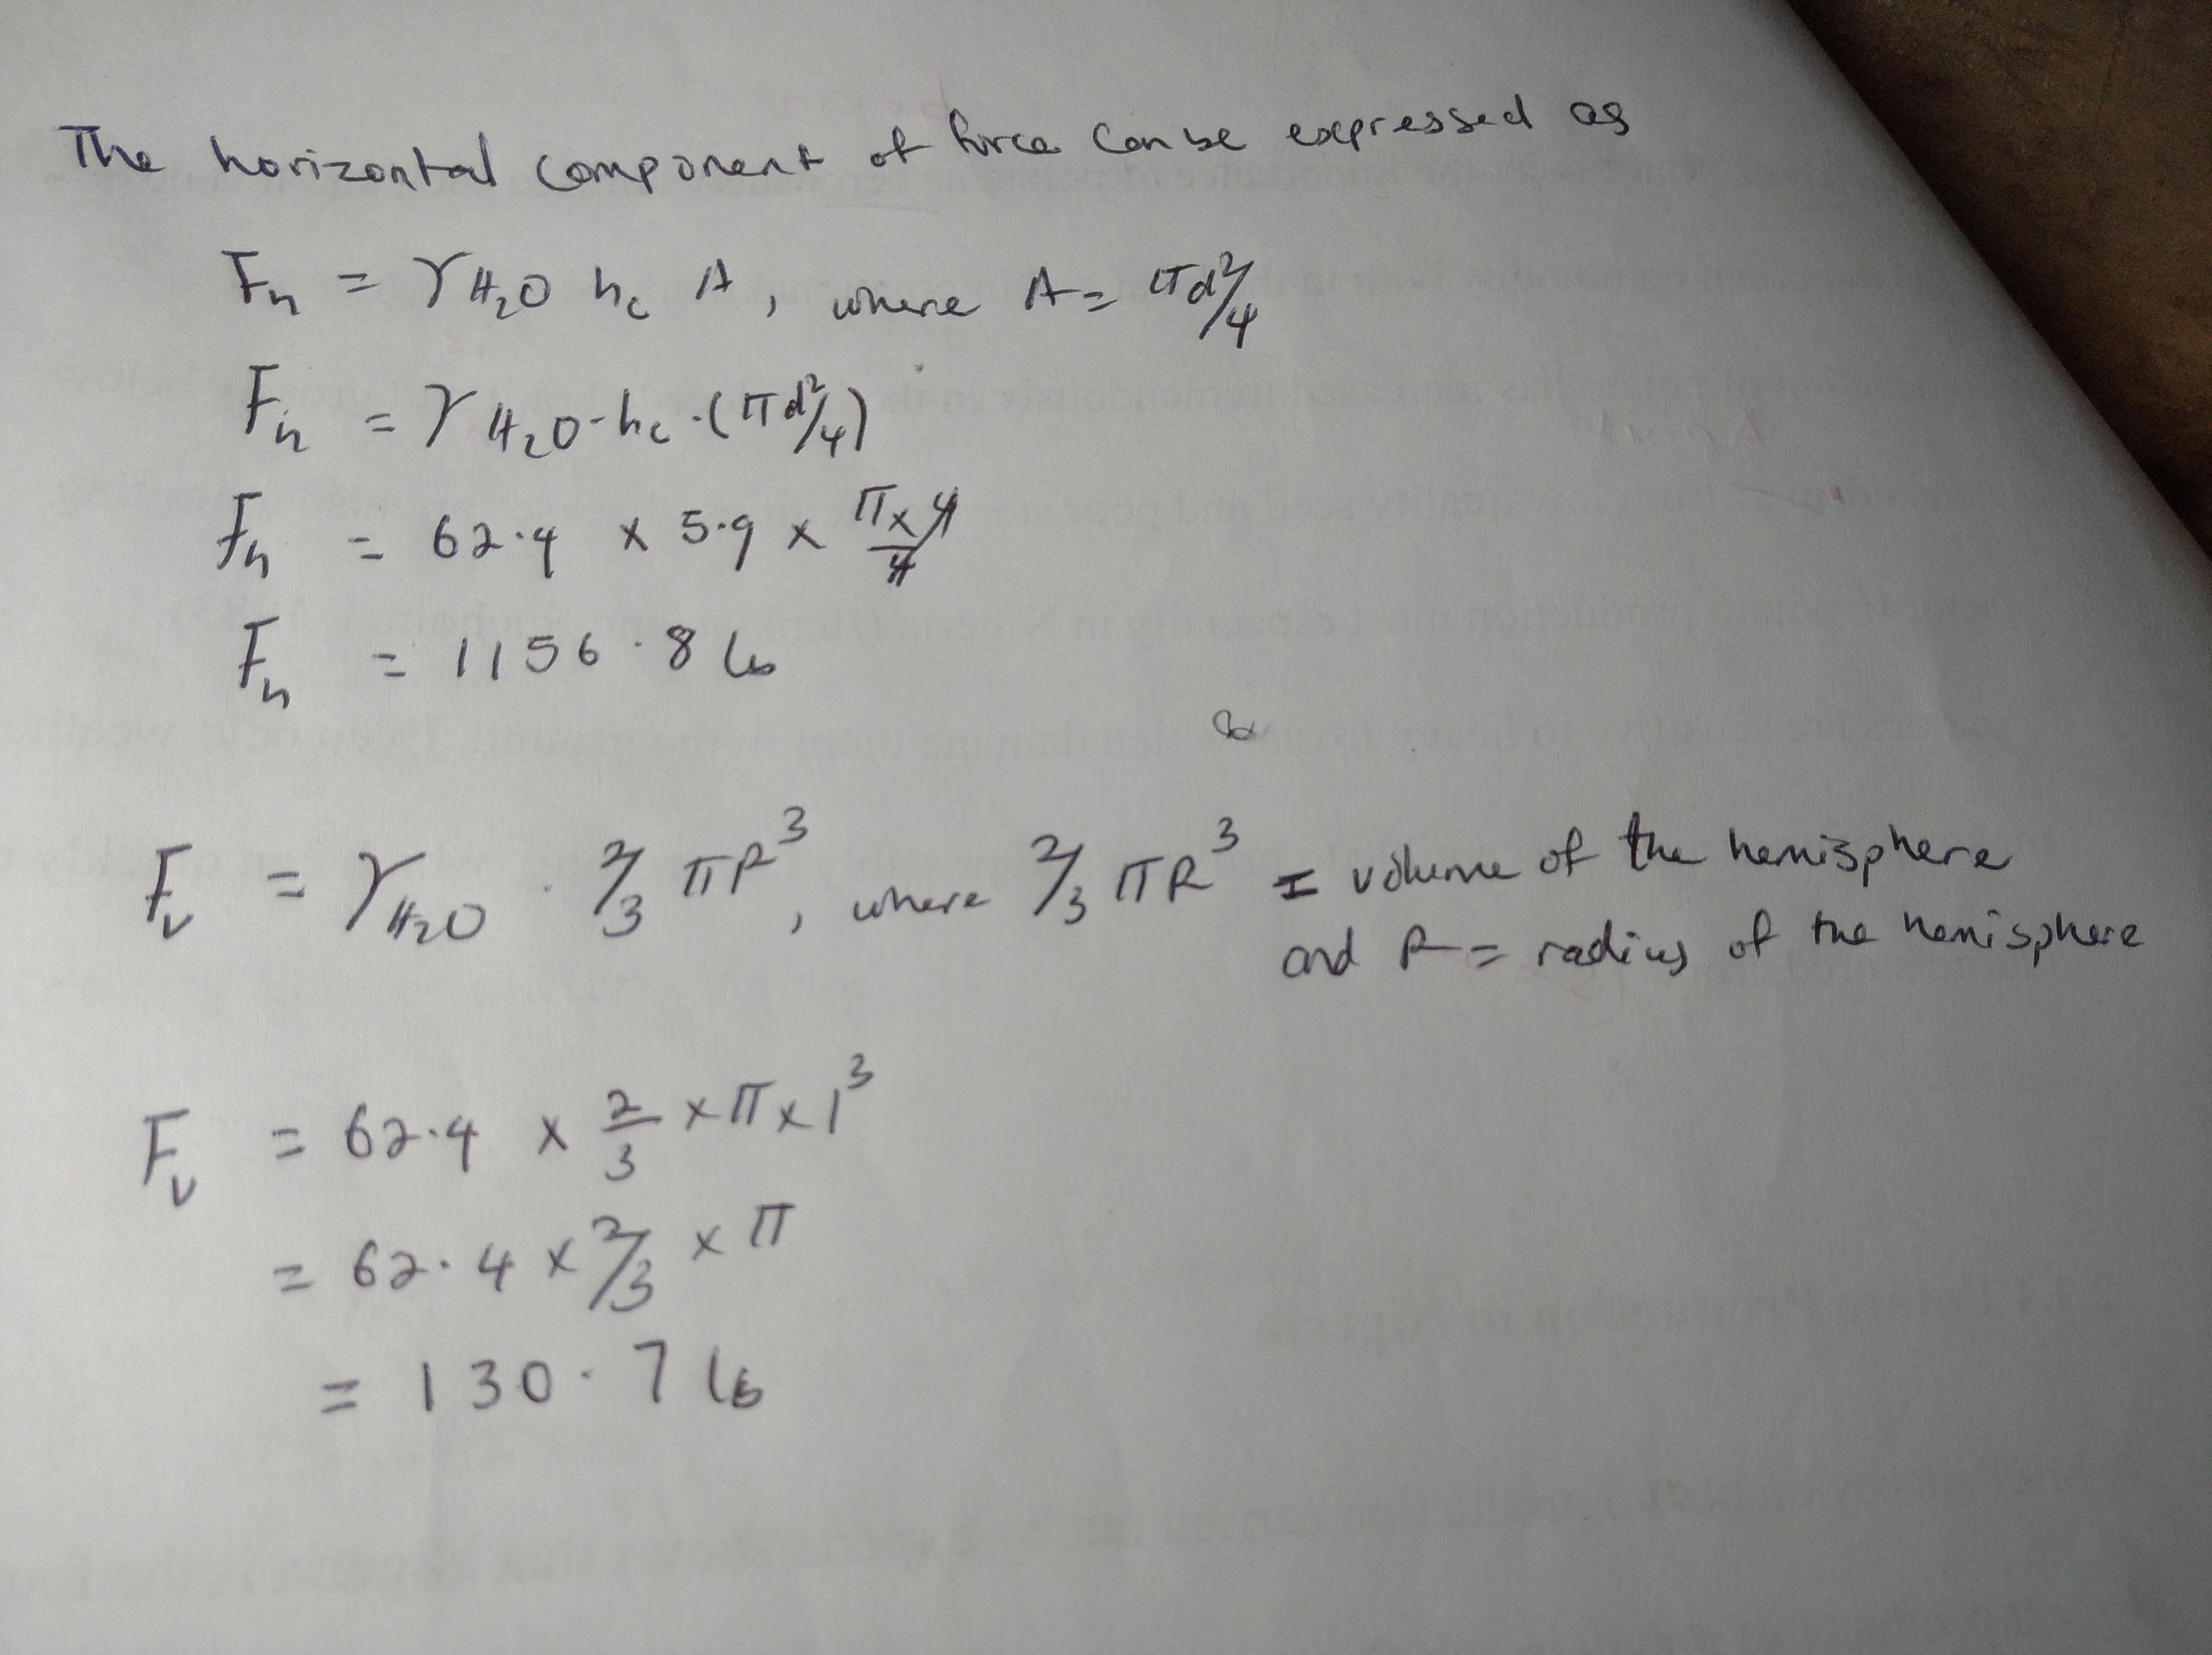 The horizontal component of force can be expressed as
Fh = γH₂O hc A, where A = πd²/4
Fh = γH₂O · hc · (πd²/4)
Fh = 62.4 × 5.9 × π×4/4
Fh = 1156.8 lb
Fv = γH₂O · 2/3 πR³, where 2/3 πR³ = volume of the hemisphere
and R = radius of the hemisphere
Fv = 62.4 × 2/3 × π × 1³
= 62.4 × 2/3 × π
= 130.7 lb